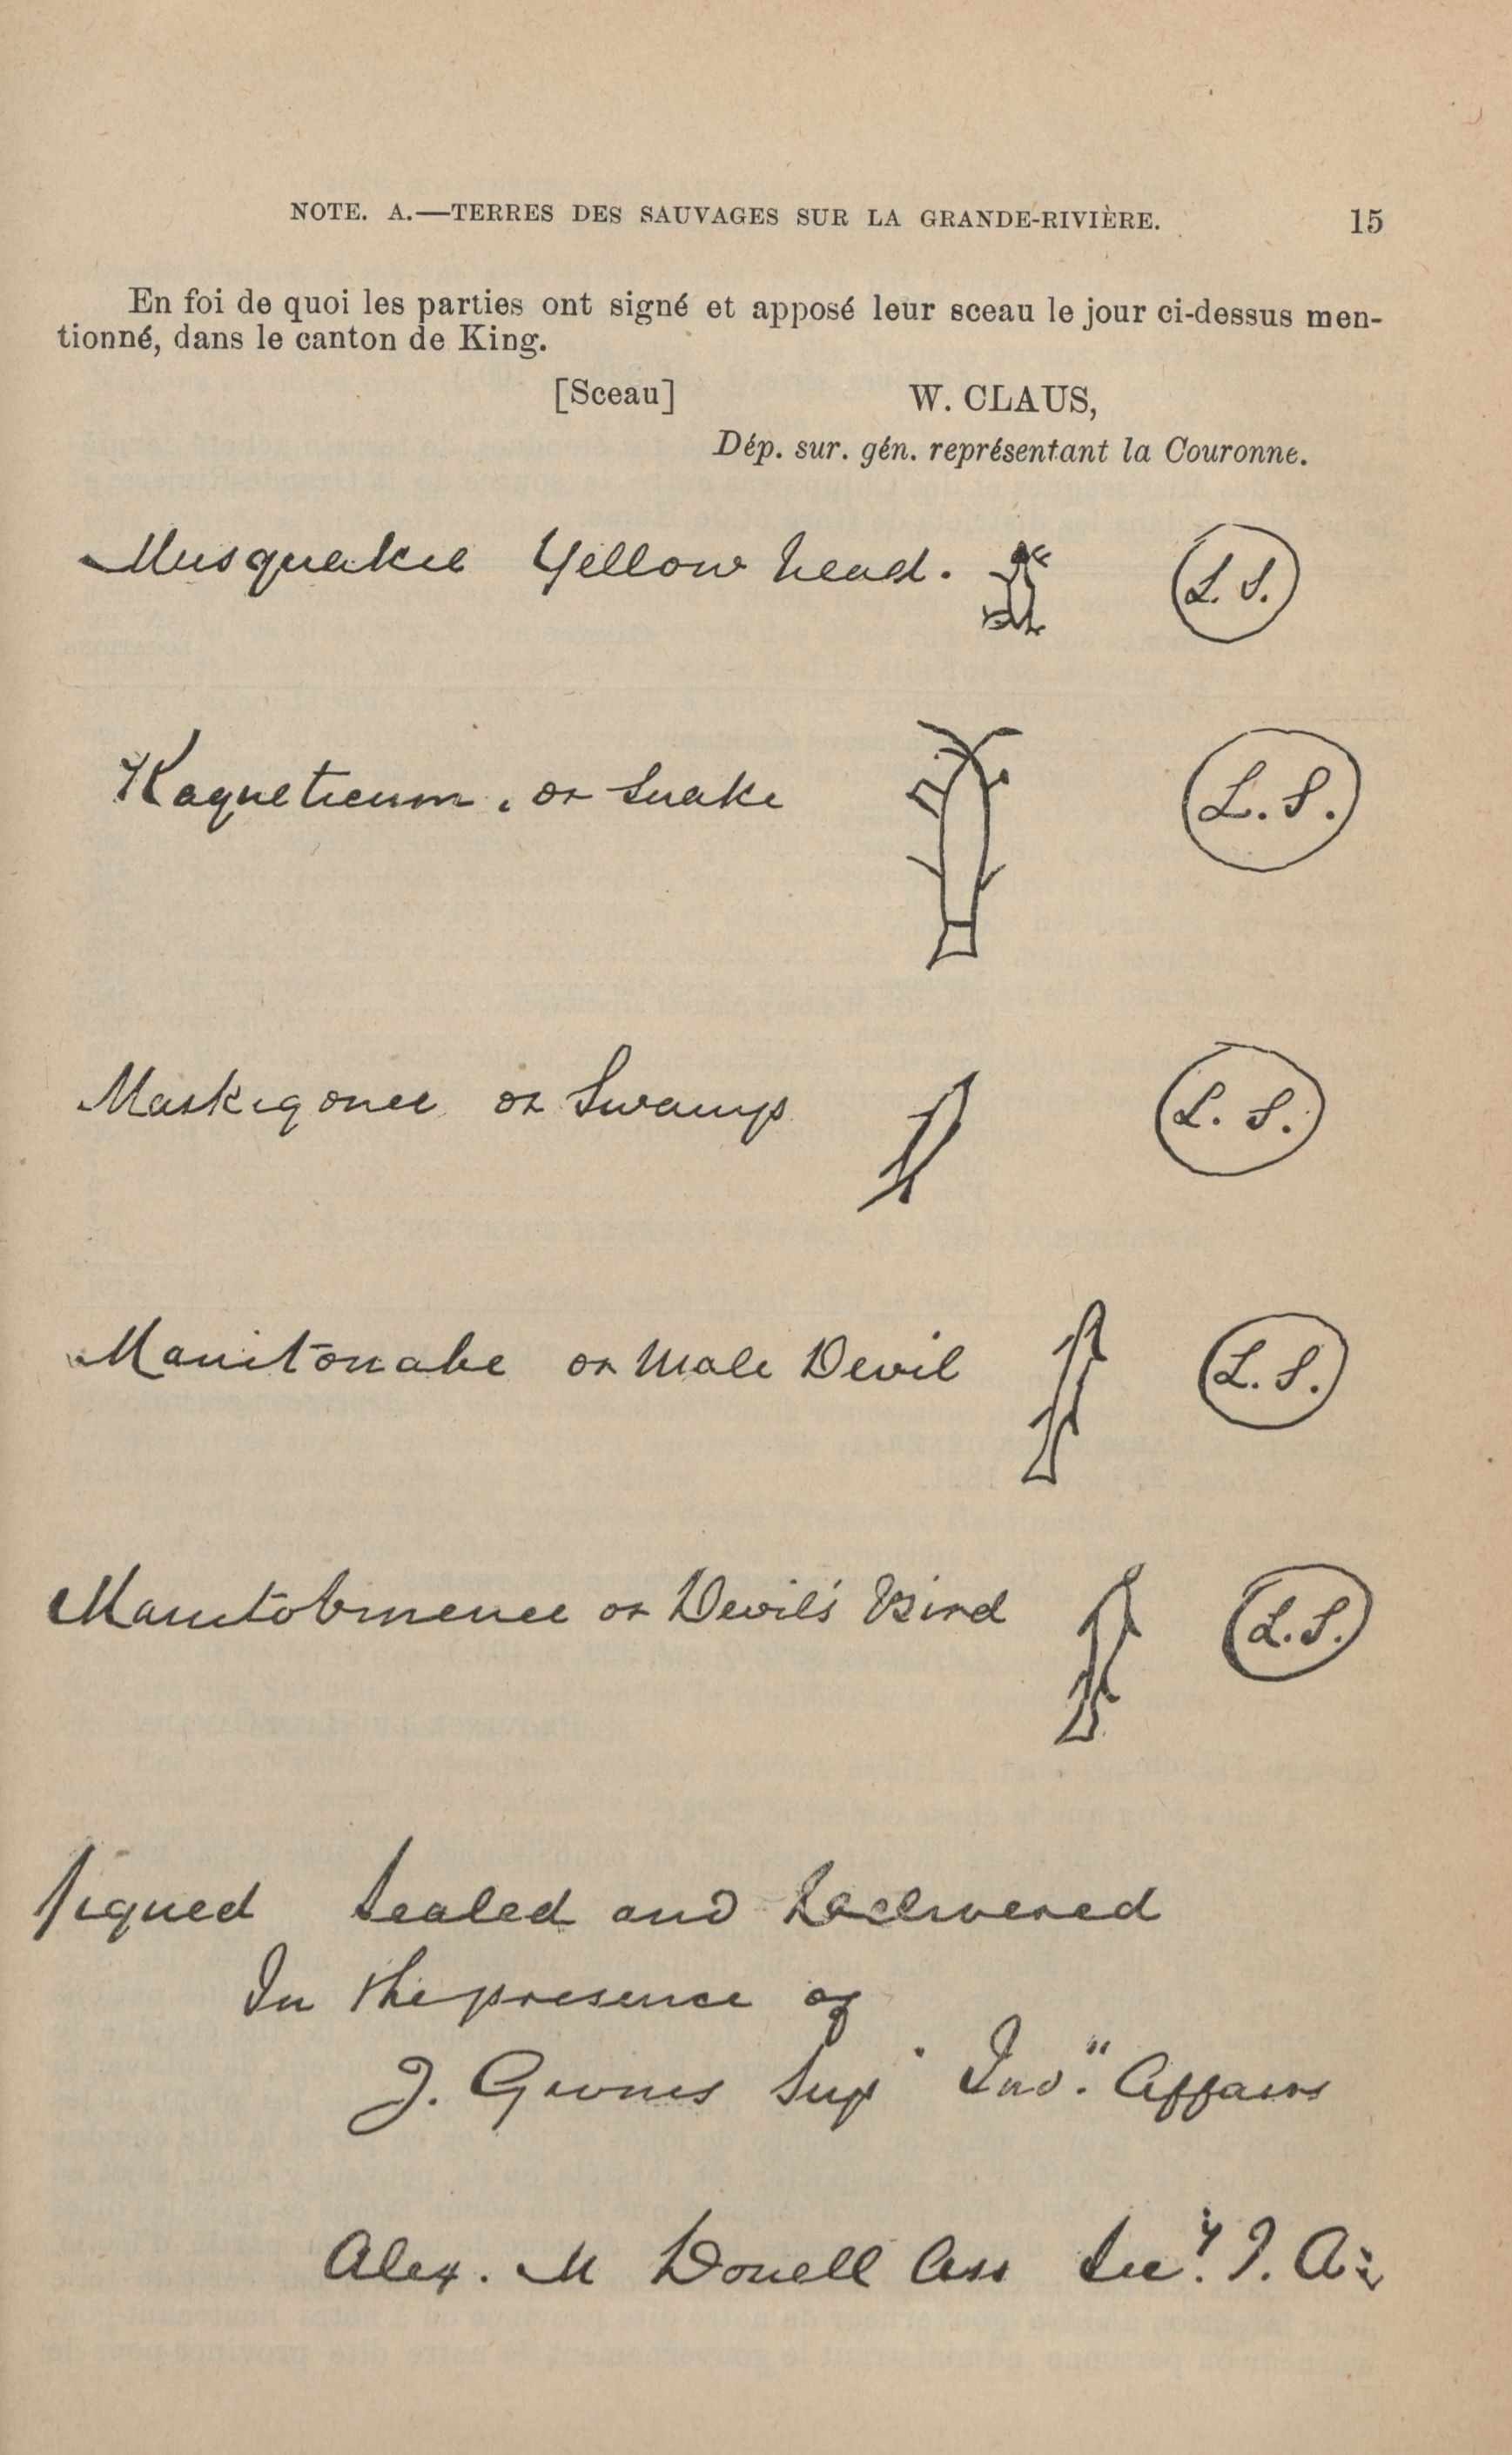 NOTE. A.—TERRES DES SAUVAGES SUR LA GRANDE-RIVIÈRE. 15
En foi de quoi les parties ont signé et apposé leur sceau le jour ci-dessus men-
tionné, dans le canton de King.
[Sceau] W. CLAUS,
Dép. sur. gén. représentant la Couronne.
Musquakie Yellow head. L. S.
Kaqueticum, or Snake L. S.
Maskigonce or Swamp L. S.
Manitonabe or Male Devil L. S.
Manitobinence or Devil's Bird L. S.
Signed Sealed and Delivered
In the presence of
J. Givins Sup Ind. Affairs
Alex. M Donell Ass Sec.y I. A.